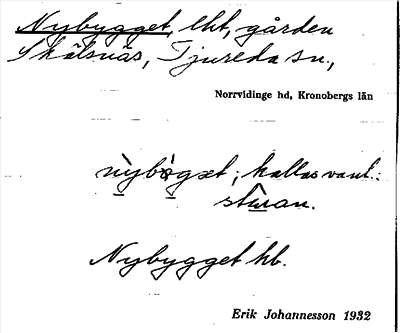 Nybygget, lht, gården
Skälsnäs, Tjureda sn.,
Norrvidinge hd, Kronobergs län
nỳbògət; kallas vanl.:
stu̇ran.
Nybygget hb.
Erik Johannesson 1932